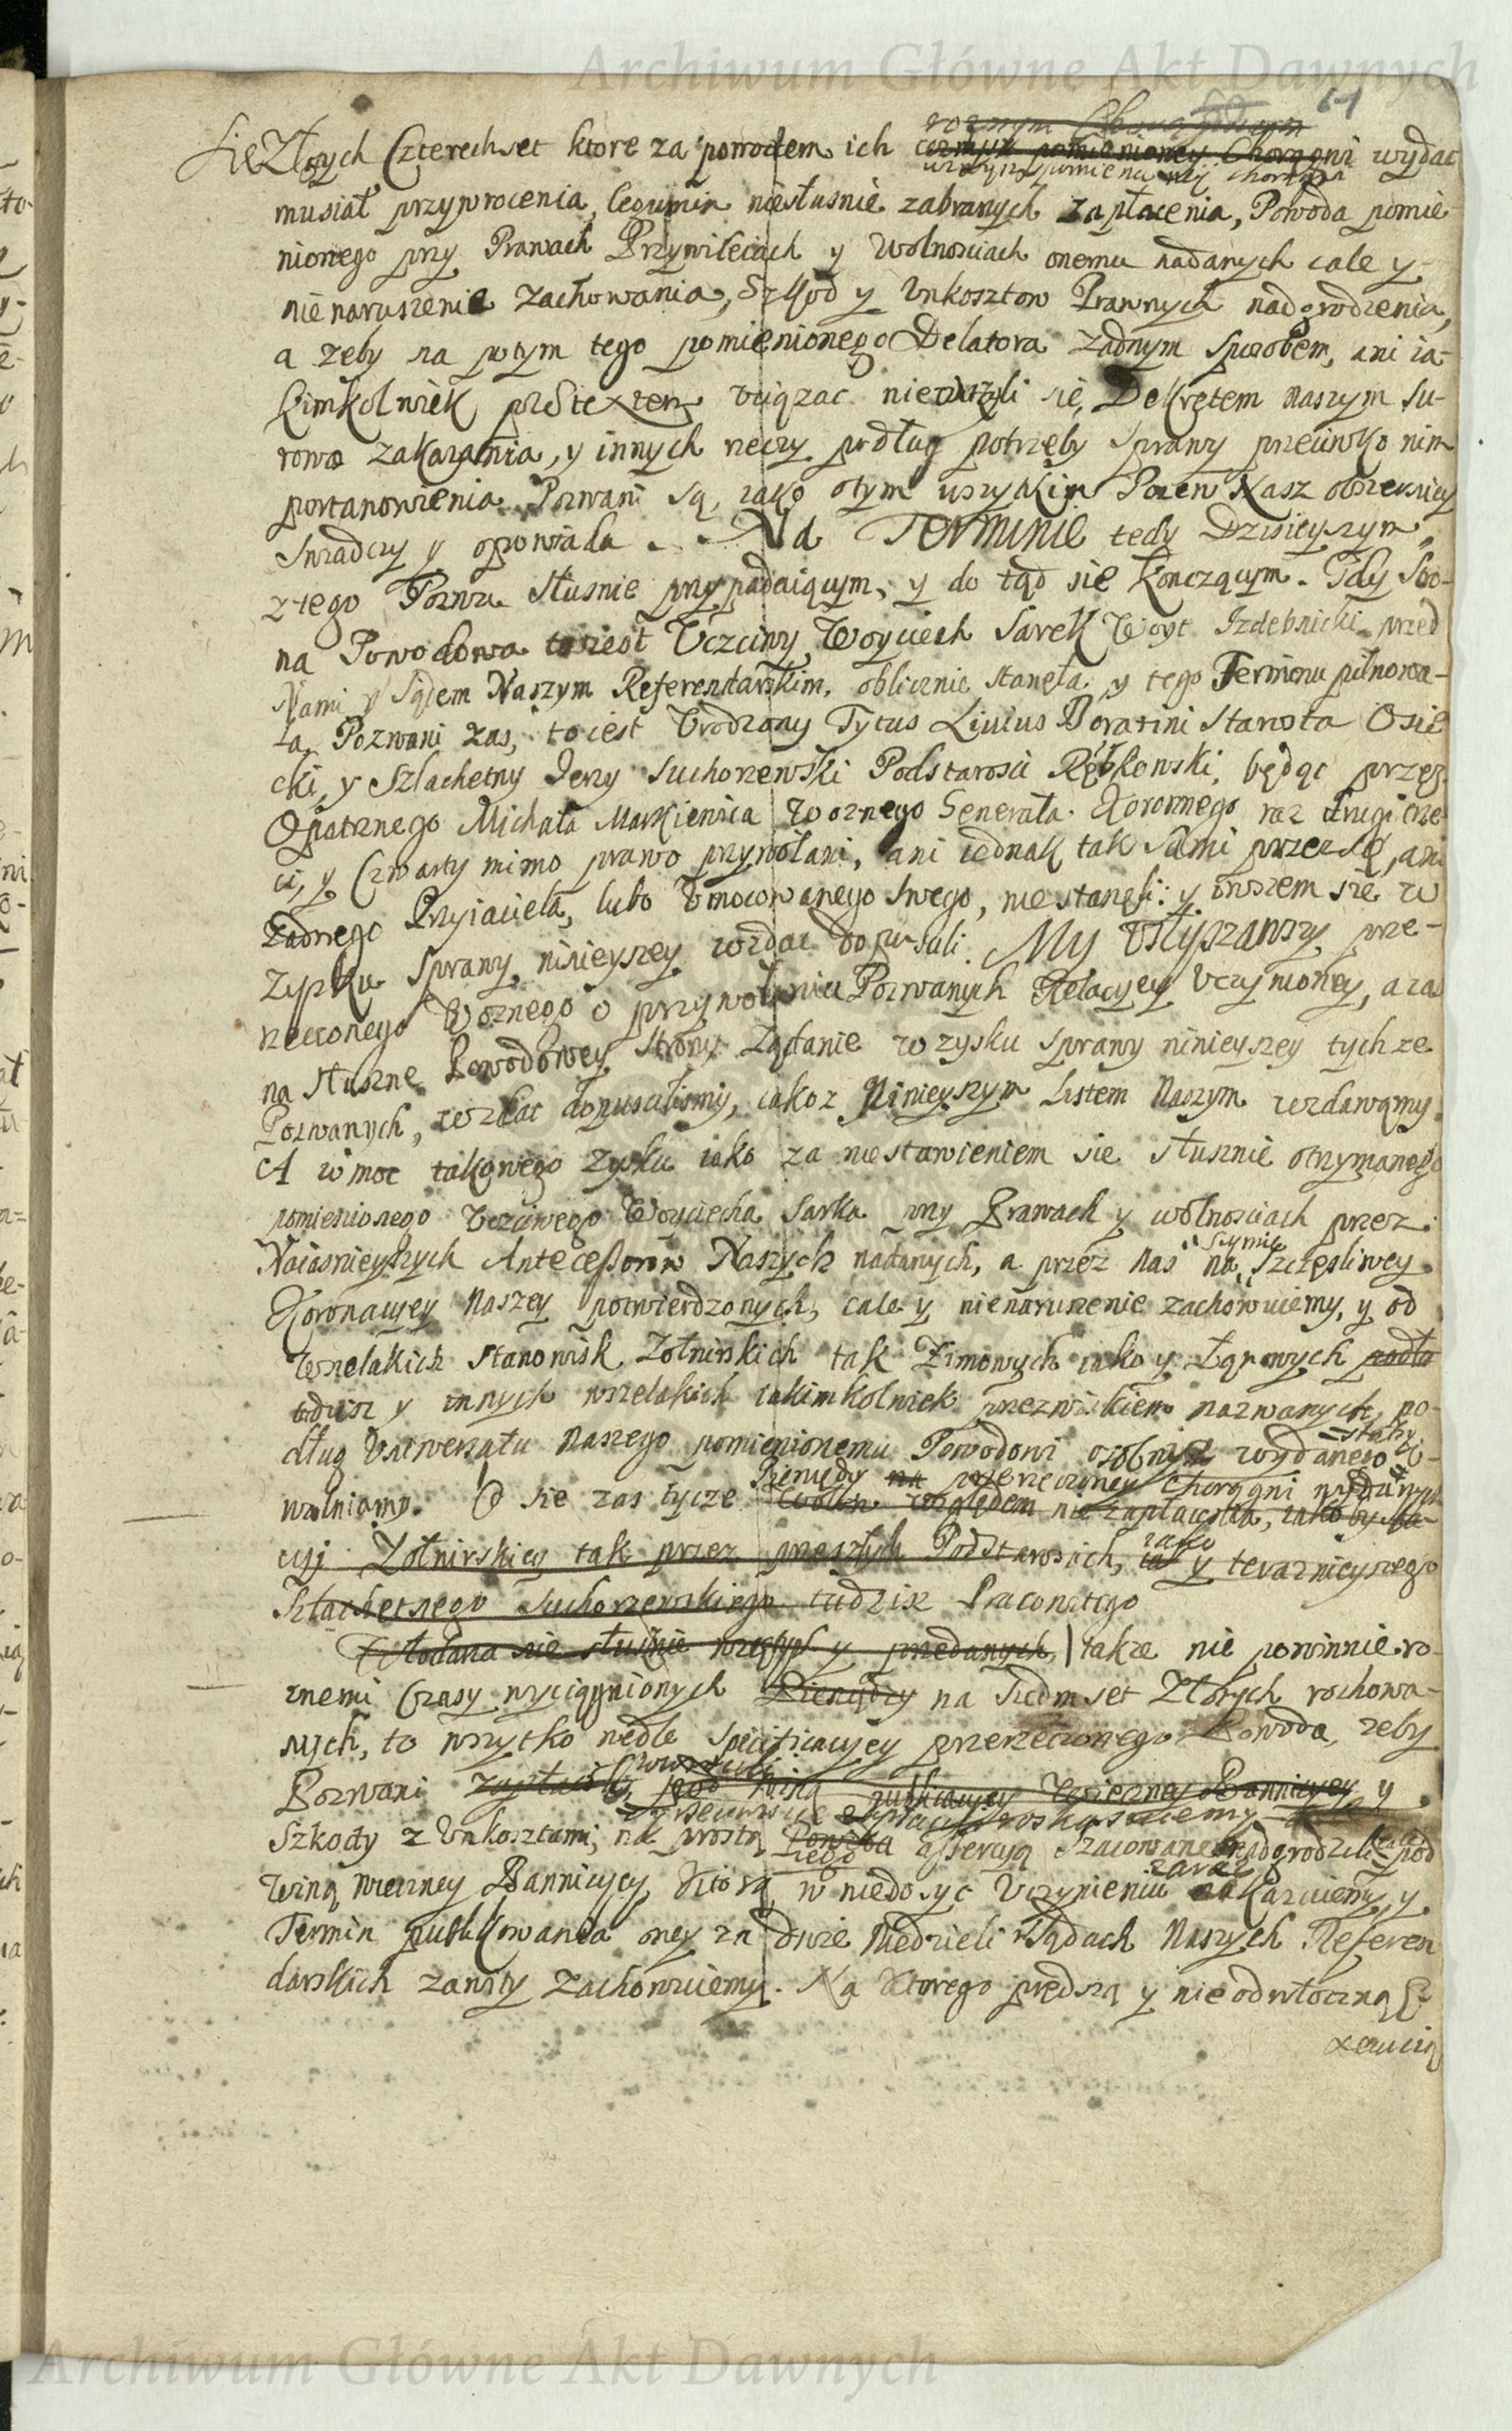 Archiwum Główne Akt Dawnych
61
roznym Chorągwiom
Złotych Czterechset ktore za powodem ich pomienioney Chorągwi wydać
wyżey pomienioney Chorągwi
musiał przywrocenia, legumin niesłusnie zabranych zapłacenia, Powoda pomie-
nionego przy Prawach Przywileiach y Wolnosciach onemu nadanych cale y
nienaruszenie zachowania, Szkod y Vnkosztow Prawnych nadgrodzenia,
a zeby na potym tego pomienionego Delatora zadnym sposobem, ani ia-
kimkolwiek praetextem vciązac nieważyli się, Dekretem naszym su-
rowo zakazania, y innych rzeczy podług potrzeby sprawy przeciwko nim
postanowienia Pozwani są, iako o tym wszytkim Pozew Nasz obszerniey
swiadczy y opowiada. Na Terminie tedy Dzisieyszym
z tego Pozwu słusnie przypadaiącym, y do tąd się konczącym. Gdy Stro-
na Powodowa to iest Vczciwy Woyciech Sarek Woyt Izdebnicki przed
Nami y Sądem Naszym Referendarskim, oblicznie stanęła y tego Terminu pilnowa-
ła, Pozwani zas, to iest Vrodzony Tytus Liuius Boratini Starosta Osie
cki, y Szlachetny Jerzy Suchorzewski Podstarosci Rębkowski, będąc przez
Opatrznego Michała Markiewica Woznego Generała Koronnego raz drugi trze
ci, y Czwarty mimo prawo przywołani, ani iednak tak sami przez się, ani
żadnego Przyiaciela, lubo Vmocowanego swego, nie stanęli: y owszem się w
zysku sprawy ninieyszey wzdac dopuscili. My Vsłyszawszy prze-
rzeczonego Woznego o przywołaniu Pozwanych Relacyey Vczynioney, a zas
na słuszne Powodowey strony żądanie w zysku sprawy ninieyszey tychze
Pozwanych, wzdac dopuscilismy, iakoz Ninieyszym Listem Naszym wzdawamy.
A w moc takowego zysku iako za niestawieniem się słusznie otrzymanego
pomienionego Vczciwego Woyciecha Sarka przy Prawach y wolnosciach przez
Naiasnieyszych Antecessorow Naszych nadanych, a przez nas na Seymie szczęsliwey
Koronacyey Naszey potwierdzonych, cale y nienaruszenie zachowuiemy, y od
Wszelakich Stanowisk Zołnirskich tak Zimowych iako y Lgowych podło
tdusz y innych wszelakich iakimkolwiek przezwiskiem nazwanych, po-
dług Vniwersału Naszego pomienionemu Powodowi osobnym wydanego V-
walniamy. Co się zas tycze Pieniędzy na przerzeczoney Chorągwi wydanych
względem niezapłacenia, iakoby sta-
cyi Zołnirskiey tak przez przeszłych Podstarosich, iako y terazneyszego
Szlachetnego Suchorzewskiego tudzisz
niesłusznie wziętych y przedanych, takze nie powinnie ro-
znemi Czasy wyciągnionych Pieniędzy na Siedmset Złotych rachowa-
nych, to wszytko wedle specificacyey przerzeczonego Powoda, zeby
Pozwani powrocili, pod winą publicacyey Wieczney Bannicyey y
Szkody z Vnkosztami, na prostą iego assercyą szacowane nadgrodzili pod
winą wieczney Bannicyey, ktorą w niedosyc Vczynieniu zaraz nakazuiemy, y
Termin publikowania oney za dwie Niedzieli w Sądach Naszych Referen
darskich zawity zachowuiemy. Na ktorego prędszą y nieodwłoczną E-
xecucią
Archiwum Główne Akt Dawnych